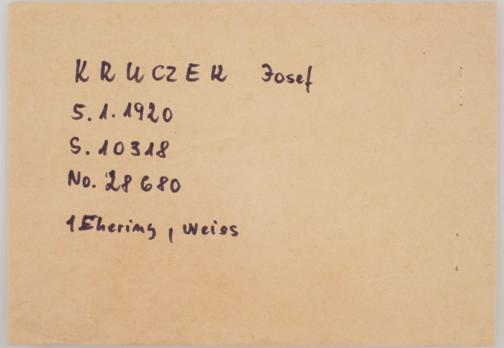 KRUCZEK Josef
5.1.1920
S. 10318
No. 28680
1 Ehering, weiss